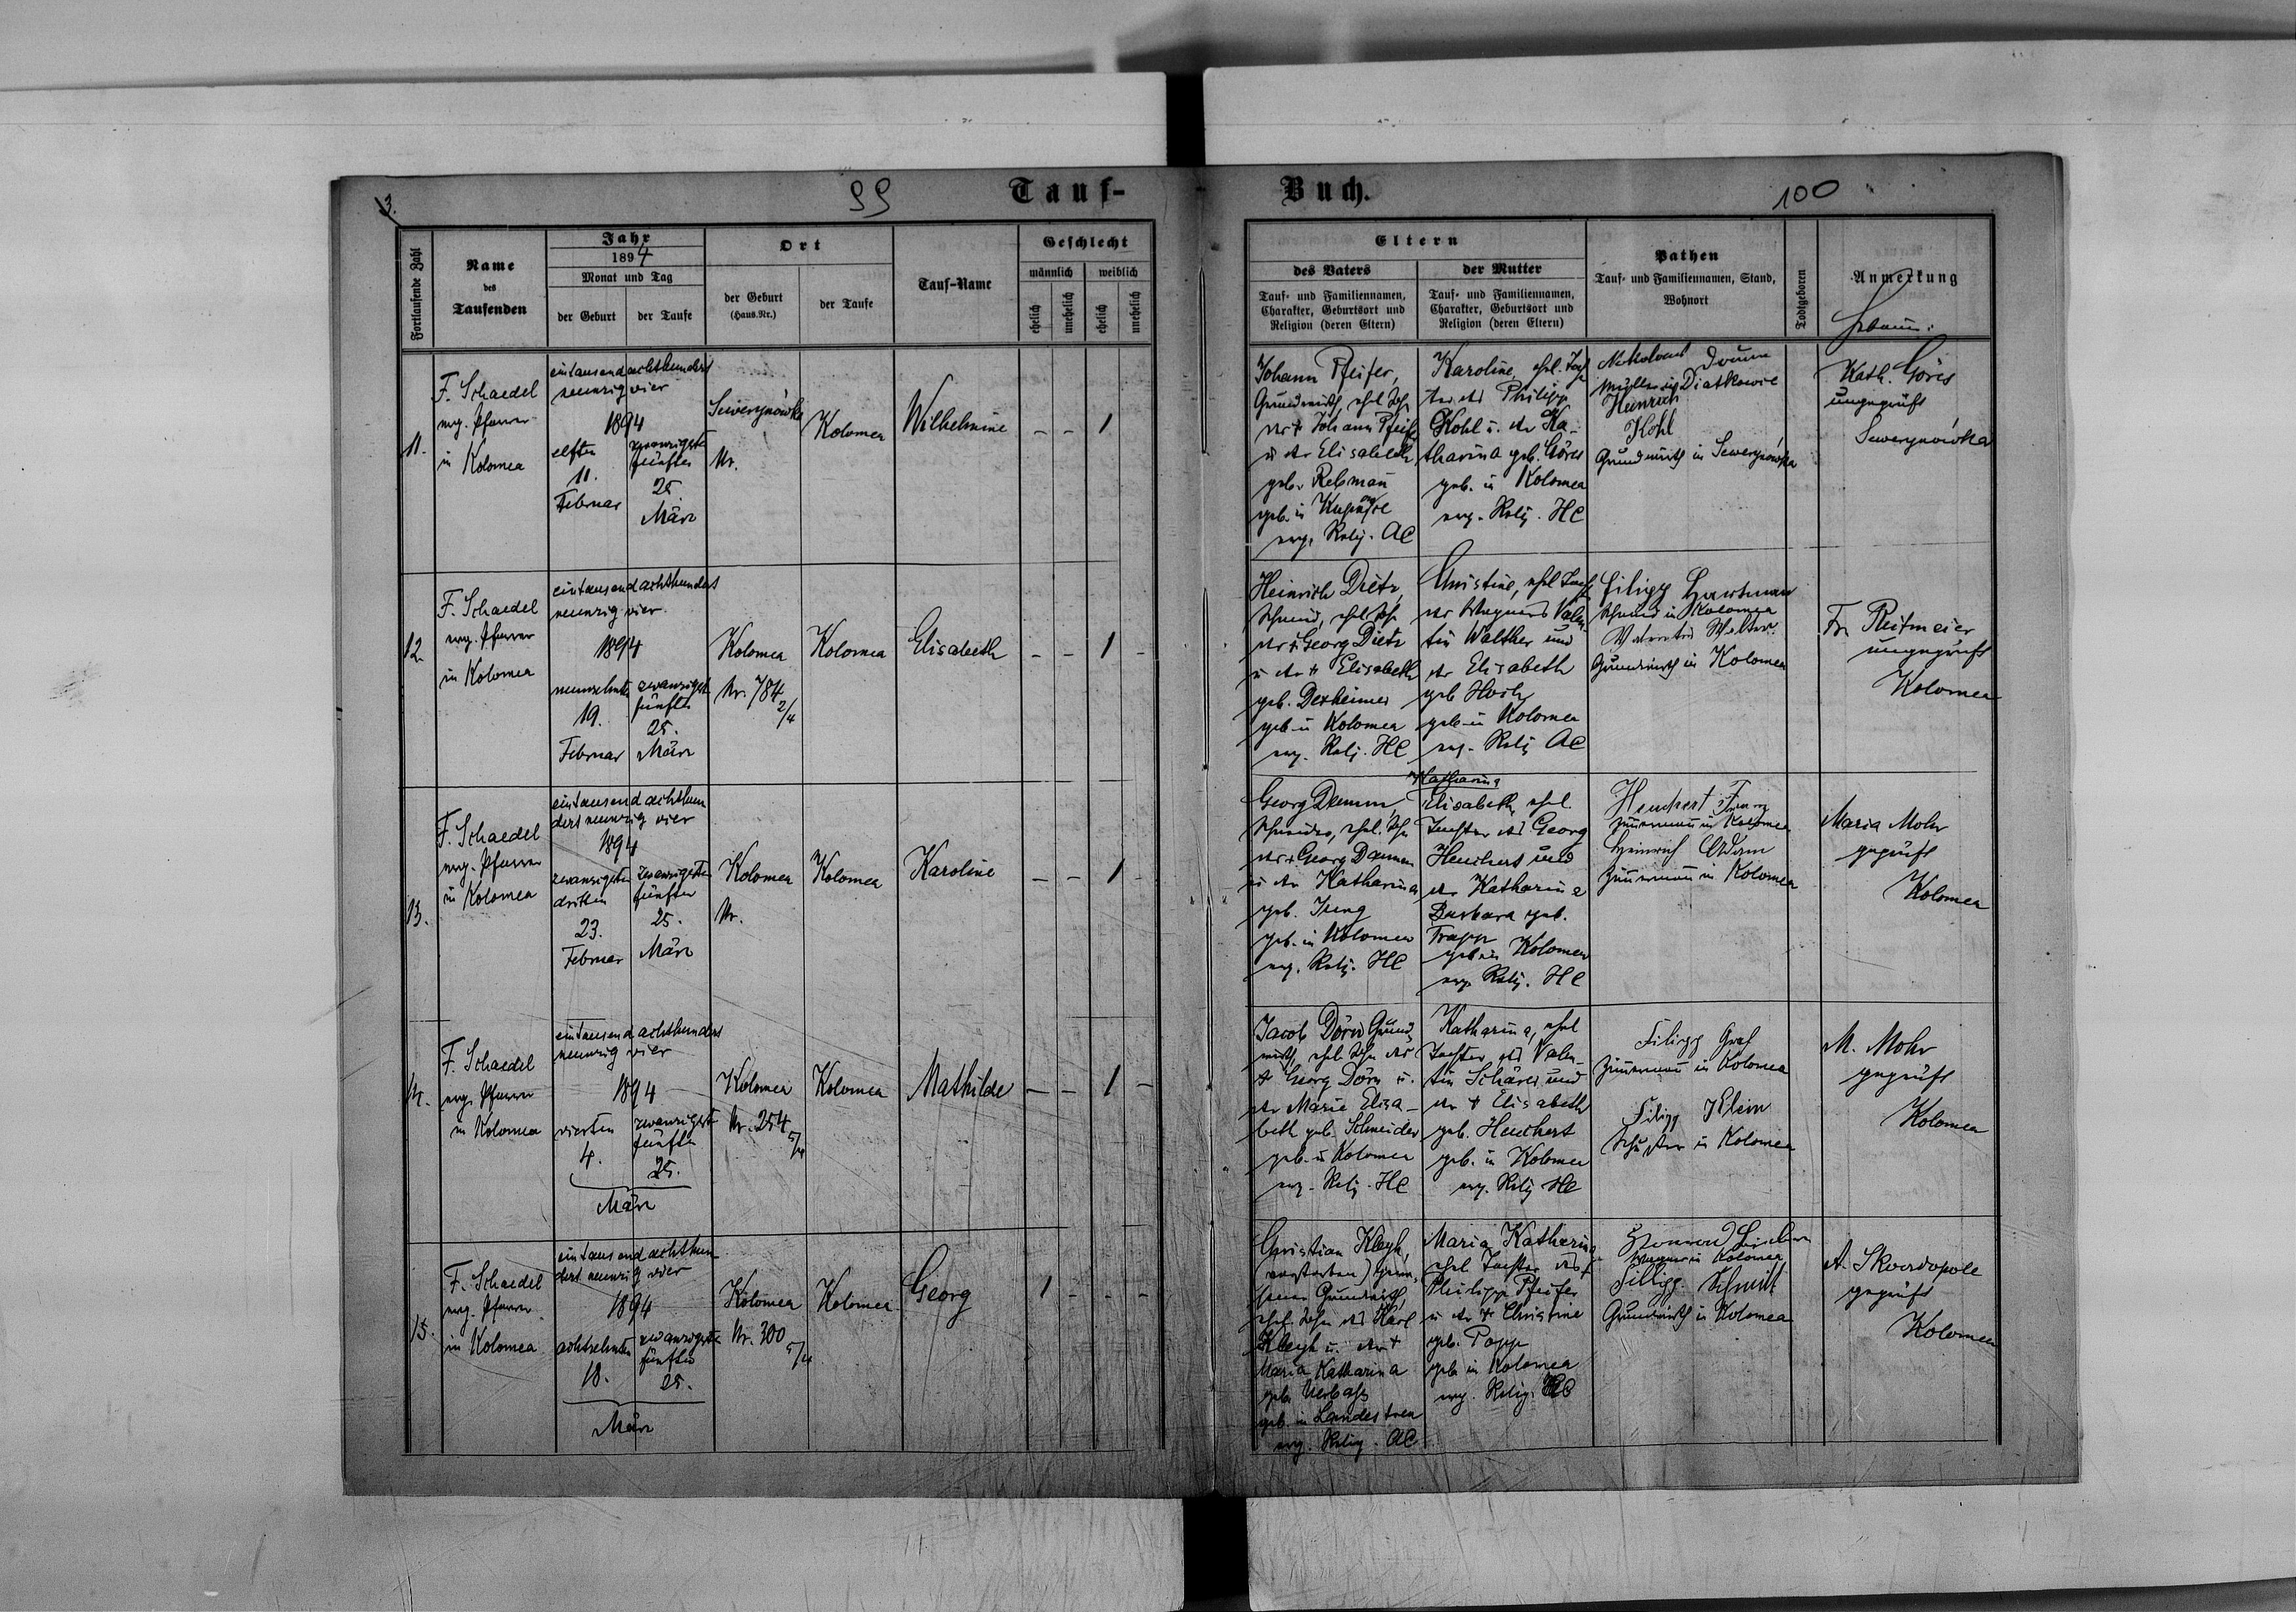 3.
99
Tauf-
Fortlaufende Zahl
Name
des
Taufenden
Jahr
1894
Monat und Tag
der Geburt
der Taufe
Ort
der Geburt
(Haus.Nr.)
der Taufe
Tauf-Name
Geschlecht
männlich
weiblich
ehelich
unehelich
ehelich
unehelich
11.
F. Schaedel
evg. Pfarrer
in Kolomea
eintausendachthundert
neunzig vier
1894
elften
11.
Februar
zwanzigsten
fünften
25.
März
Sewerynówka
Nr.
Kolomea
Wilhelmine
- - 1
12.
F. Schaedel
evg. Pfarrer
in Kolomea
eintausendachthundert
neunzig vier
1894
neunzehnte
19.
Februar
zwanzigst
fünfte
25.
März
Kolomea
Nr. 784 2/4
Kolomea
Elisabeth
- - 1 -
13.
F. Schaedel
evg. Pfarrer
in Kolomea
eintausend achthun
dert neunzig vier
1894
zwanzigsten
dritten
23.
Februar
zwanzigsten
fünften
25.
März
Kolomea
Nr.
Kolomea
Karoline
- - 1 -
14.
F. Schaedel
evg. Pfarrer
in Kolomea
eintausend achthundert
neunzig vier
1894
vierten
4.
zwanzigst
fünfte
25.
März
Kolomea
Nr. 254 5/4
Kolomea
Mathilde
- - 1 -
15.
F. Schaedel
evg. Pfarrer
in Kolomea
eintausend achthun
dert neunzig vier
1894
achtzehnten
18.
zwanzigste
fünften
25.
März
Kolomea
Nr. 300 5/4
Kolomea
Georg
1 - - -
Buch.
100
Eltern
des Vaters
Tauf- und Familiennamen,
Charakter, Geburtsort und
Religion (deren Eltern)
der Mutter
Tauf- und Familiennamen,
Charakter, Geburtsort und
Religion (deren Eltern)
Pathen
Tauf- und Familiennamen, Stand,
Wohnort
Todtgeboren
Anmerkung
Hebamme:
Johann Pfeifer,
Grundwirth, ehel. Sohn
des † Johann Pfeifer
u. der Elisabeth
geb. Rebman
geb. in
evg. Relig. AC
Karoline, ehel. Toch
ter des Philipp
Kohl u. der Ka-
tharina geb. Göres
geb. in Kolomea
evg. Relig. HC
Diatkowce
Heinrich
Kohl
Grundwirth in Sewerynówka
Kath. Göres
ungeprüft
Sewerynówka
Heinrich Dietz,
Schmid, ehel. Sohn
des † Georg Dietz
u. der † Elisabeth
geb. Dexheimer
geb. in Kolomea
evg. Relig. HC
Christine, ehel. Tocht
des Wagners Valen
tin Walther und
der Elisabeth
geb.
geb. in Kolomea
evg. Relig. AC
Filipp Hartman
Schmid in Kolomea
Grundwirth in Kolomea
Fr. Reitmeier
ungeprüft
Kolomea
Georg Damm
Schneider, ehel. Sohn
des † Georg Damm
u. der Katharina
geb. Jung
geb. in Kolomea
evg. Relig. HC
Katharina
Elisabeth, ehel.
Tochter des Georg
Heuchert und
der Katharina
Barbara geb.
Trapp
geb. in Kolomea
evg. Relig. HC
Heuchert
Zimmermann in Kolomea
Heinrich Adam
Zimmermann in Kolomea
Maria Mohr
geprüft
Kolomea
Jacob Dörn Grund
wirth, ehel. Sohn des
† Georg Dörn u.
der Marie Elisa-
beth geb. Schneider
geb. in Kolomea
evg. Relig. HC
Katharina, ehel
Tochter des Valen-
tin Schärer und
der † Elisabeth
geb. Heuchert
geb. in Kolomea
evg. Relig. HC
Filipp Graf
Zimmermann in Kolomea
Filipp Klein
Schuster in Kolomea
M. Mohr
geprüft
Kolomea
Christian Kleyh,
(verstorben) gewe-
sener Grundwirth,
ehel. Sohn des Karl
Kleyh u. der †
Maria Katharina
geb.
geb. in Landestreu
evg. Relig. AC
Maria Katharina
ehel. Tochter des †
Philipp Pfeifer
u. der † Christine
geb. Popp
geb. in Kolomea
evg. Relig.
Wagner in Kolomea
Filipp Schmitt
Grundwirth in Kolomea
A. Skordopole
geprüft
Kolomea